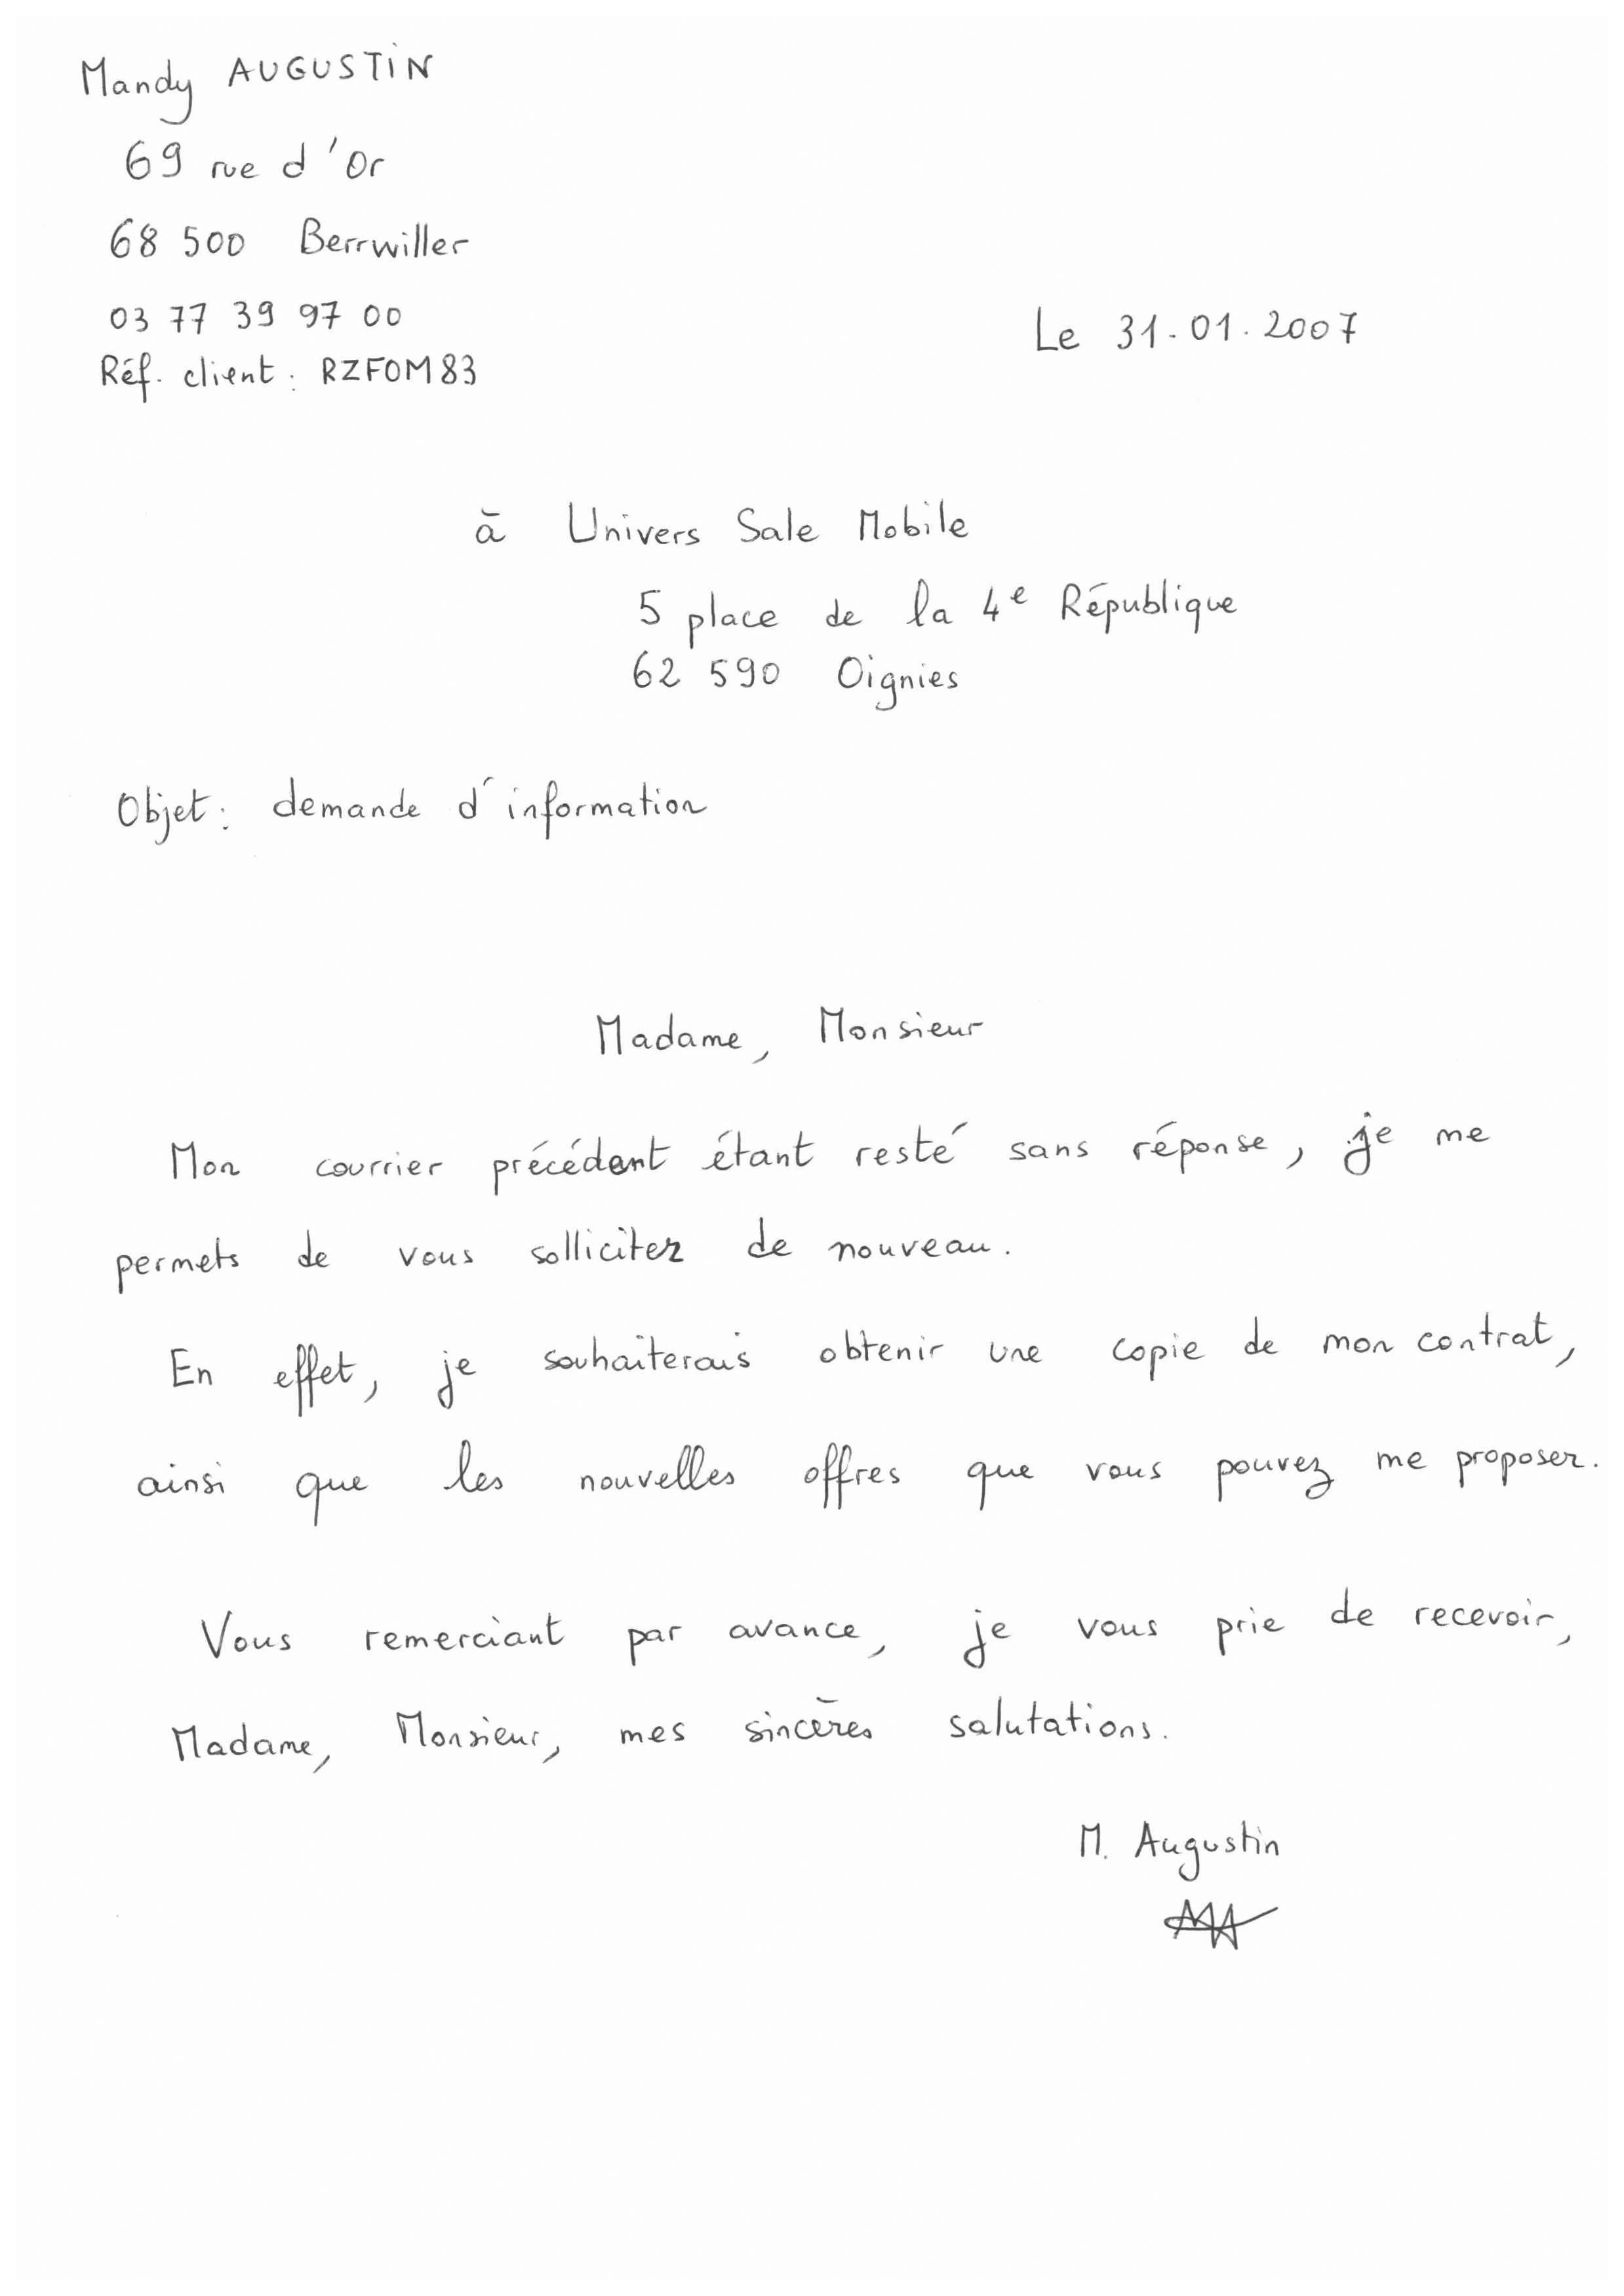 Mandy AUGUSTIN
69 rue d'Or
68 500 Berrwiller
03 77 39 97 00
Le 31.01.2007
Réf. client : RZFOM83
à Univers Sale Mobile
5 place de la 4e République
62 590 Oignies
Objet : demande d'information
Madame, Monsieur
Mon courrier précédent étant resté sans réponse, je me
permets de vous solliciter de nouveau.
En effet, je souhaiterais obtenir une copie de mon contrat,
ainsi que les nouvelles offres que vous pouvez me proposer.
Vous remerciant par avance, je vous prie de recevoir,
Madame, Monsieur, mes sincères salutations.
M. Augustin